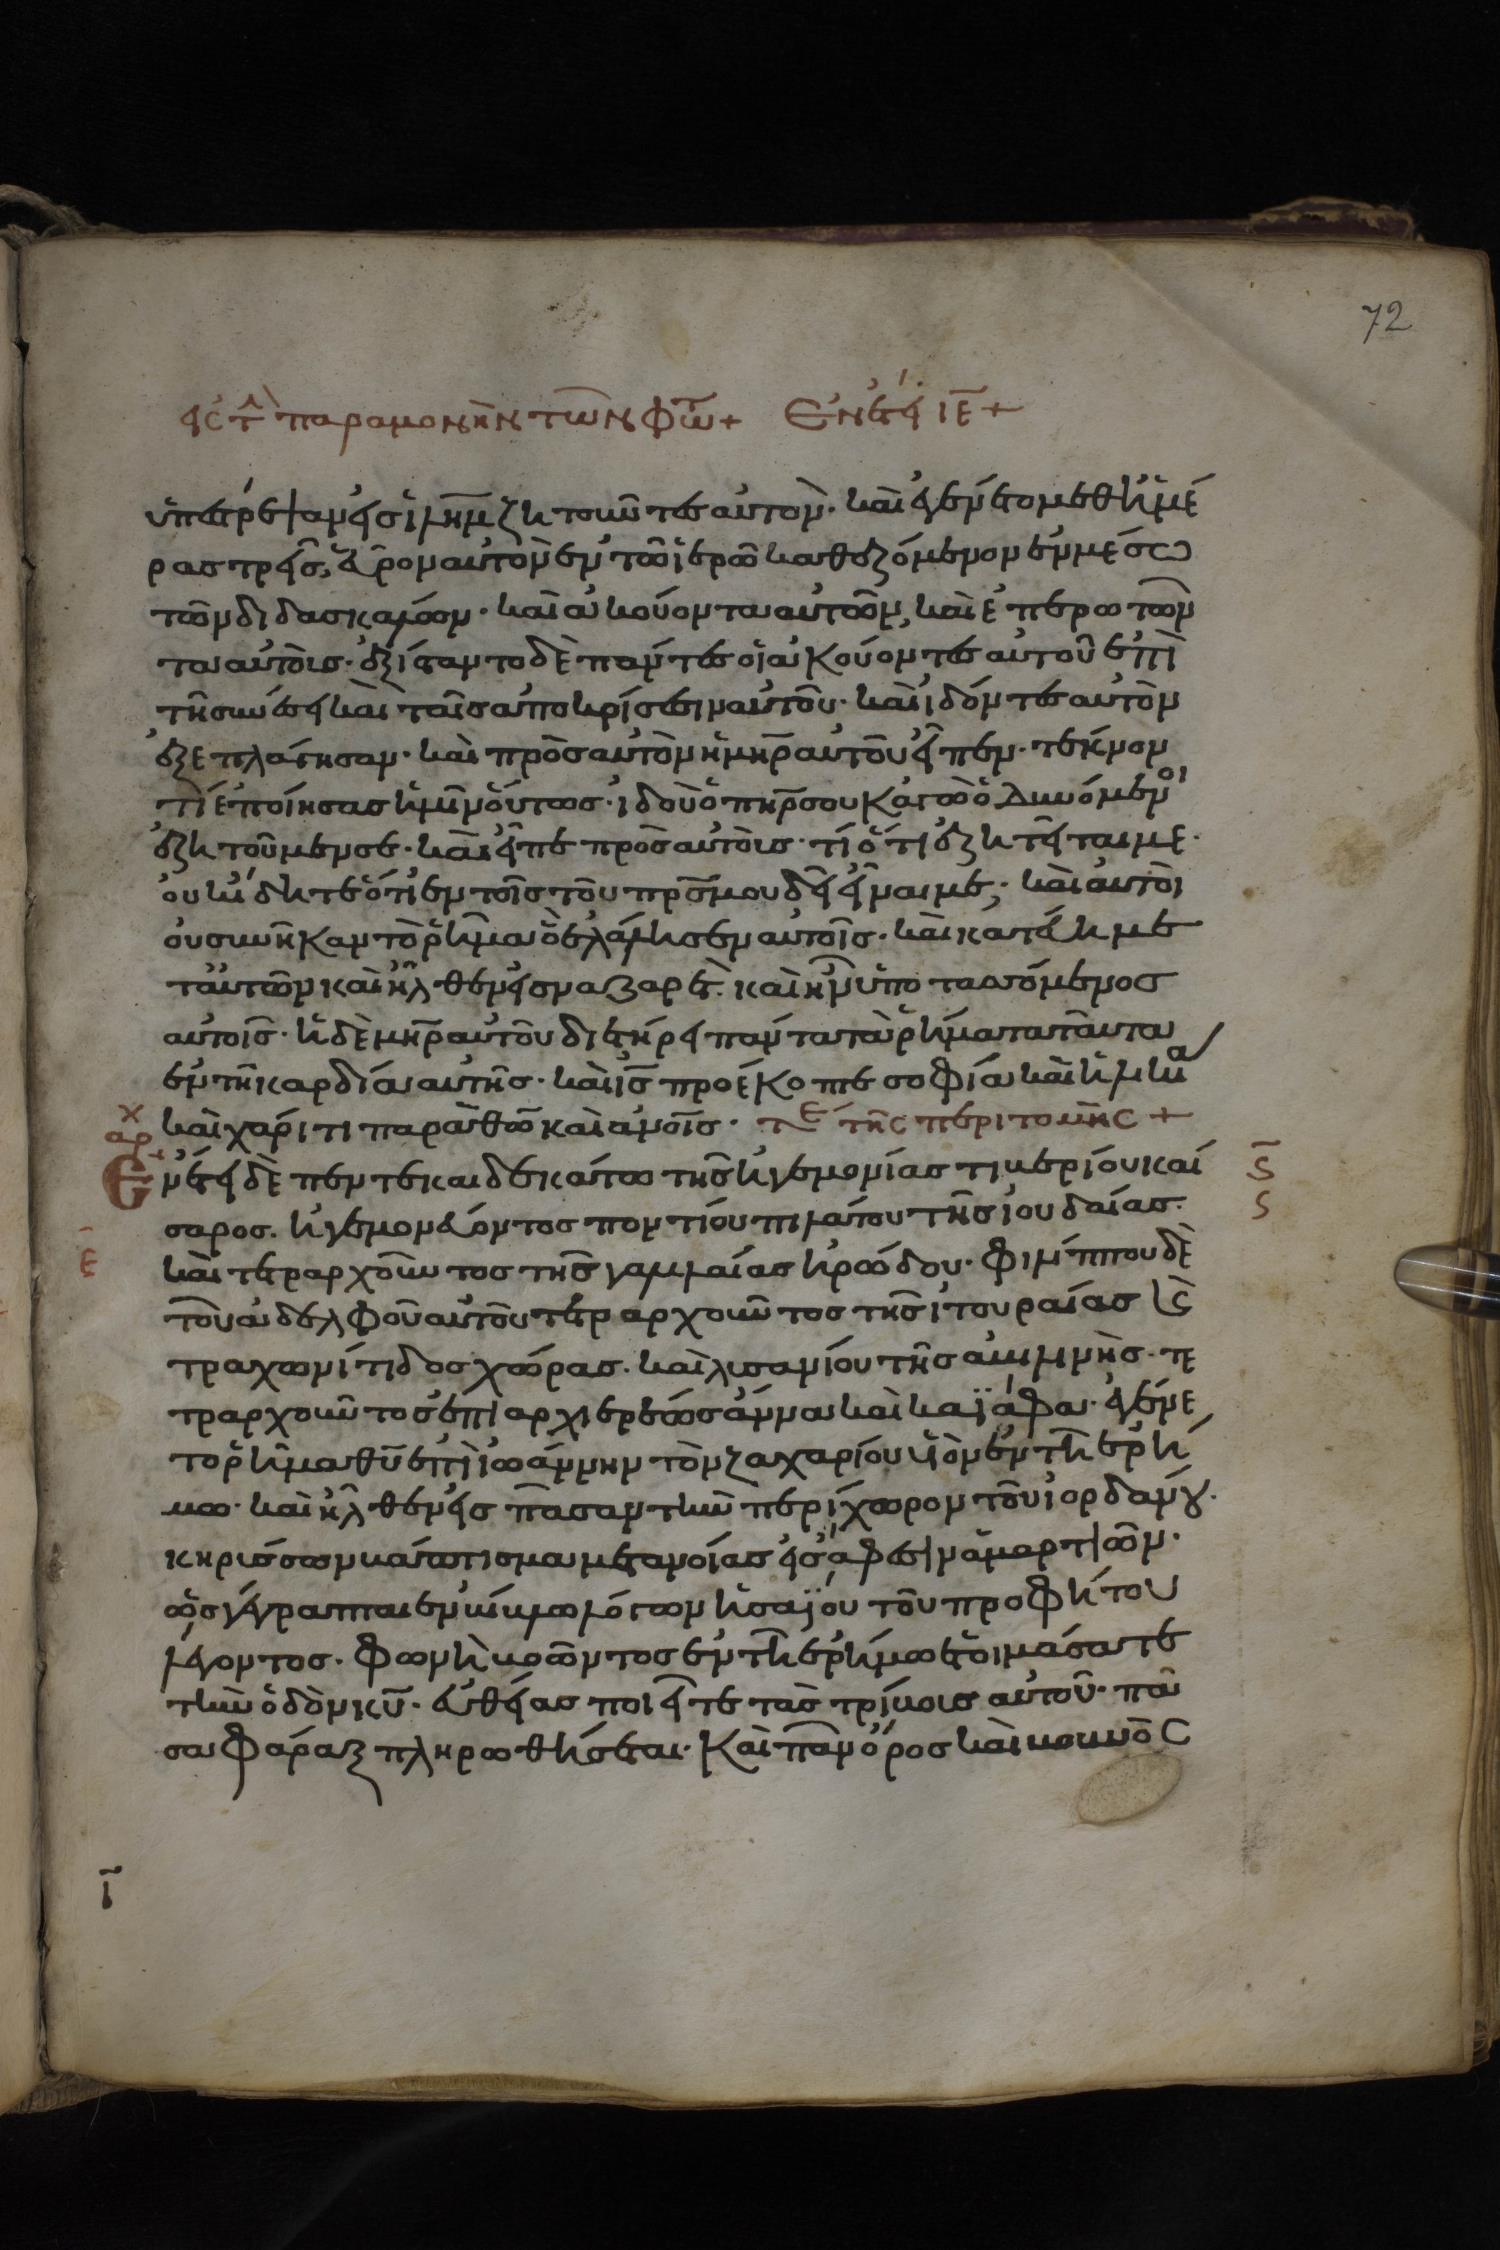 72
εἰς τ παραμονὴν τῶν φώτ + Ἐν ἔτει ιε +
ὑπέρεψαν εἰς ἱλὴμ ζητοῦντες αὐτὸν· καὶ ἐγένετο μεθ ἡμέ
ρας τρεῖς, εὗρον αὐτὸν ἐν τῶ ἱερῶ καθεζόμενον ἐν μέσω
τῶν διδασκάλων· καὶ ἀκούοντα αὐτῶν, καὶ ἐπερωτῶν
τα αὐτοὺς· ἐξίσταντο δὲ πάντες οἱ ἀκούοντες αὐτοῦ ἐπὶ
τῆ συνέσει καὶ ταῖς ἀποκρίσεσιν αὐτοῦ· καὶ ἰδόντες αὐτὸν
ἐξεπλάγησαν· καὶ πρὸς αὐτὸν ἡ μηρ αὐτοῦ εἶπεν· τέκνον
τί ἐποίησας ἡμῖν οὕτως· ἰδοὺ ὁ πηρ σου κἀγὼ ὀδυνόμενοι
ἐζητοῦμέν σε· καὶ εἶπε πρὸς αὐτοὺς· τί ὅτι ἐζητεῖται με·
οὐκ ἤδητε ὅτι ἐν τοῖς τοῦ πρς μου δεῖ εἶναι με; καὶ αὐτοὶ
οὐ συνῆκαν τὸ ῥῆμα ὃ ἐλάλησεν αὐτοῖς· καὶ κατέβη με
τ αὐτῶν καὶ ἦλθεν εἰς ναζαρέτ· καὶ ἦν ὑποτασσόμενος
αὐτοῖς· ἡ δὲ μηρ αὐτοῦ διετήρει πάντα τὰ ῥήματα ταῦτα
ἐν τῆ καρδία αὐτῆς· καὶ ις προέκοπτε σοφία καὶ ἡλικία
καὶ χάριτι παρὰ θω καὶ ἀνοις· τε τῆς περιτομῆς +
αρχ
Ἐν ἔτει δὲ πεντεκαιδεκάτω τῆς ἡγεμονίας τιβερίου καί ϛ
σαρος· ἡγεμονεύοντος ποντίου πιλάτου τῆς ἰουδαίας· ϛ
ε
καὶ τετραρχοῦντος τῆς γαλιλαίας ἡρώδου· φιλίππου δὲ
τοῦ ἀδελφοῦ αὐτοῦ τετραρχοῦντος τῆς ἰτουραίας κὲ
τραχωνίτιδος χώρας· καὶ λυσανίου τῆς ἀβιλινῆς· τε
τραρχοῦντος ἐπὶ ἀρχιερέως ἄννα καὶ καϊάφα· ἐγένε
το ῥῆμα θυ ἐπὶ ἰωάννην τὸν ζαχαρίου υἱὸν ἐν τῆ ἐρή
μω· καὶ ἦλθεν εἰς πᾶσαν τὴν περίχωρον τοῦ ἰορδάνου·
κηρύσσων βάπτισμα μετανοίας εἰς ἄφεσιν ἁμαρτιῶν·
ὡς γέγραπται ἐν βίβλω λόγων ἡσαϊου τοῦ προφήτου
λέγοντος· φωνὴ βοῶντος ἐν τῆ ἐρήμω ἑτοιμάσατε
τὴν ὁδὸν κυ· εὐθείας ποιεῖτε τὰς τρίβους αὐτοῦ· πᾶ
σα φάραξ πληρωθήσεται· καὶ πᾶν ὄρος καὶ βουνὸς
ι